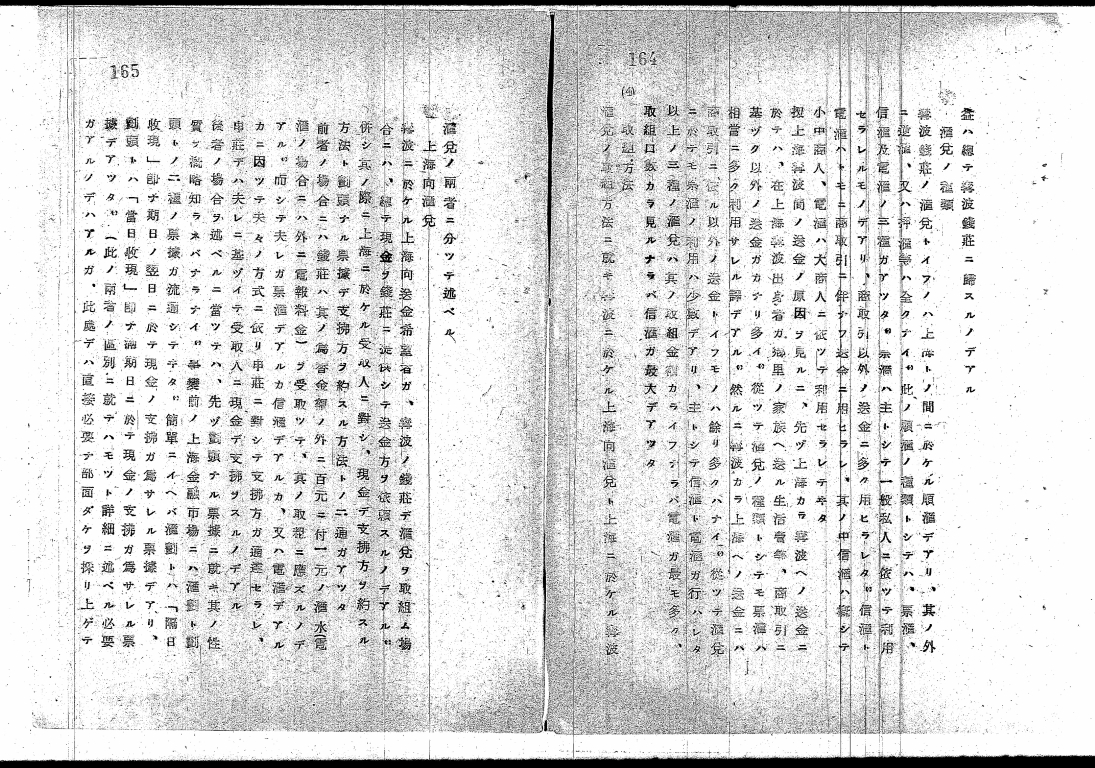 164
益ハ總テ寧波錢莊ニ歸スルノデアル
滙兌ノ種類
寧波錢莊ノ滙兌トイフノハ上海トノ間ニ於ケル順滙デアリ、其ノ外
ニ逆滙、又ハ押滙等ハ全クナイ。此ノ順滙ノ種類トシテハ、票滙、
信滙及電滙ノ三種ガアツタ。票滙ハ主トシテ一般私人ニ依ツテ利用
セラレルモノデアリ、商取引以外ノ送金ニ多ク用ヒラレタ。信滙ト
電滙ハトモニ商取引ニ伴ナフ送金ニ用ヒラレ、其ノ中信滙ハ概シテ
小中商人、電滙ハ大商人ニ依ツテ利用セラレテヰタ
按上海寧波間ノ送金ノ原因ヲ見ルニ、先ヅ上海カラ寧波ヘノ送金ニ
於テハ、在上海寧波出身者ガ鄕里ノ家族ヘ送ル生活費等、商取引ニ
基ヅク以外ノ送金ガカナリ多イ。從ツテ滙兌ノ種類トシテモ票滙ハ
相當ニ多ク利用サレル譯デアル。然ルニ寧波カラ上海ヘノ送金ニハ
商取引ニ依ル以外ノ送金トイフモノハ餘リ多クハナイ。從ツテ滙兌
ニ於テモ票滙ノ利用ハ少數デアリ、主トシテ信滙ト電滙ガ行ハレタ
以上ノ三種ノ滙兌ハ其ノ取組金額カライフナラバ電滙ガ最モ多ク、
取組口數カラ見ルナラバ信滙ガ最大デアツタ
(4) 取組方法
滙兌ノ取組方法ニ就キ寧波ニ於ケル上海向滙兌ト上海ニ於ケル寧波
165
滙兌ノ兩者ニ分ツテ述ベル
上海向滙兌
寧波ニ於ケル上海向送金希望者ガ、寧波ノ錢莊デ滙兌ヲ取組ム場
合ニハ、總テ現金ヲ錢莊ニ提供シテ送金方ヲ依賴スルノデアル。
併シ其ノ際ニ上海ニ於ケル受取人ニ對シ、現金デ支拂方ヲ約スル
方法ト劃頭ナル票據デ支拂方ヲ約スル方法トノ二通ガアツタ
前者ノ場合ニハ錢莊ハ其ノ爲替金額ノ外ニ百元ニ付一元ノ滙水(電
滙ノ場合ニハ外ニ電報料金)ヲ受取ツテ、其ノ取組ニ應ズルノデ
アル。而シテ夫レガ票滙デアルカ信滙デアルカ、又ハ電滙デアル
カニ因ツテ夫々ノ方式ニ依リ申莊ニ對シテ支拂方ガ通達セラレ、
申莊デハ夫レニ基ヅイテ受取人ニ現金デ支拂ヲスルノデアル
後者ノ場合ヲ述ベルニ當ツテハ、先ヅ劃頭ナル票據ニ就キ其ノ性
質ヲ概略知ラネバナラナイ。事變前ノ上海金融市場ニハ滙劃ト劃
頭トノ二種ノ票據ガ流通シテヰタ。簡單ニイヘバ滙劃トハ「隔日
收現」卽チ期日ノ翌日ニ於テ現金ノ支拂ガ爲サレル票據デアリ、
劃頭トハ「當日收現」卽チ滿期日ニ於テ現金ノ支拂ガ爲サレル票
據デアツタ。(此ノ兩者ノ區別ニ就テハモツト詳細ニ述ベル必要
ガアルノデハアルガ、此處デハ直接必要ナ部面ダケヲ採リ上ゲテ